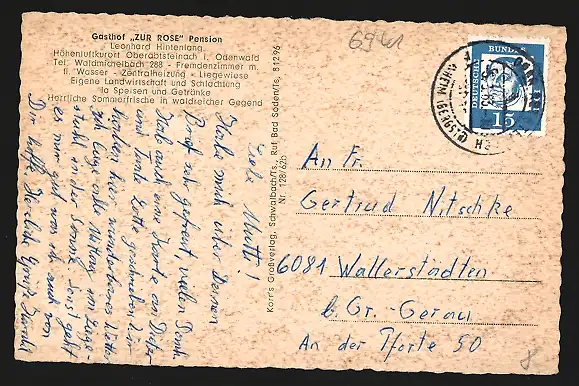 Gasthof „ZUR ROSE" Pension
Leonhard Hintenlang
Höhenluftkurort Oberabtsteinach i. Odenwald
Tel. Waldmichelbach 288 - Fremdenzimmer m.
fl. Wasser - Zentralheizung - Liegewiese
Eigene Landwirtschaft und Schlachtung
Ia Speisen und Getränke
Herrliche Sommerfrische in waldreicher Gegend
Liebe Mutti!
Habe mich über Deinen
Brief sehr gefreut, vielen Dank.
Hab auch eine Karte an
und Tante Lotte geschrieben. Wir
haben hier wunderbares Wetter
ich liege alle Mittag im Liege-
stuhl in der Sonne. Sonst geht
es mir gut was ich auch von
Dir hoffe. Herzliche Grüße
Korr's Großverlag, Schwalbach/Ts., Ruf Bad Soden/Ts. 81296
Nr. 128/62b
DEUTSCHE
BUNDES
15
An Fr.
Gertrud Nitschke
6081 Wallerstädten
b. Gr.-Gerau
An der Pforte 50
8